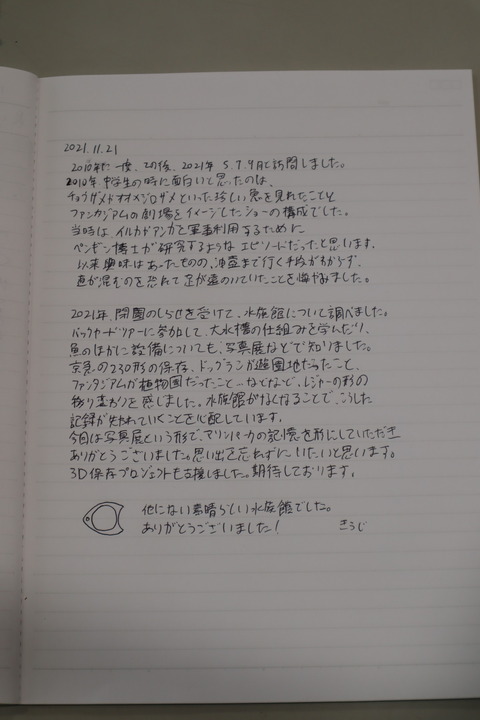 2021.11.21
2010年に一度、その後、2021年 5.7.9月と訪問しました。
2010年、中学生の時に面白いと思ったのは、
チョウザメやオオメジロザメといった珍しい魚を見れたことと
ファンタジアムの劇場をイメージしたショーの構成でした。
当時は、イルカやアシカを軍事利用するために
ペンギン博士が研究するような エピソードだったと思います。
以来興味はあったものの、油壺まで行く手段がわからず、
道が混むのを恐れて足が遠のいていたことを悔やみました。
2021年、閉園のしらせを受けて、水族館について調べました。
バックヤードツアーに参加して、大水槽の仕組みを学んだり、
魚のほかに設備についても、写真展などで知りました。
京急の230形の保存、ドッグランが遊園地だったこと、
ファンタジアムが植物園だったこと…などなど、レジャーの形の
移り変わりを感じました。水族館がなくなることで、こうした
記録が失われていくことを心配しています。
今回は写真展という形で、マリンパークの記憶を形にしていただき
ありがとうございました。思い出を忘れずにいたいと思います。
3D保存プロジェクトも支援しました。期待しております。
他にない素晴らしい水族館でした。
ありがとうございました! きうじ